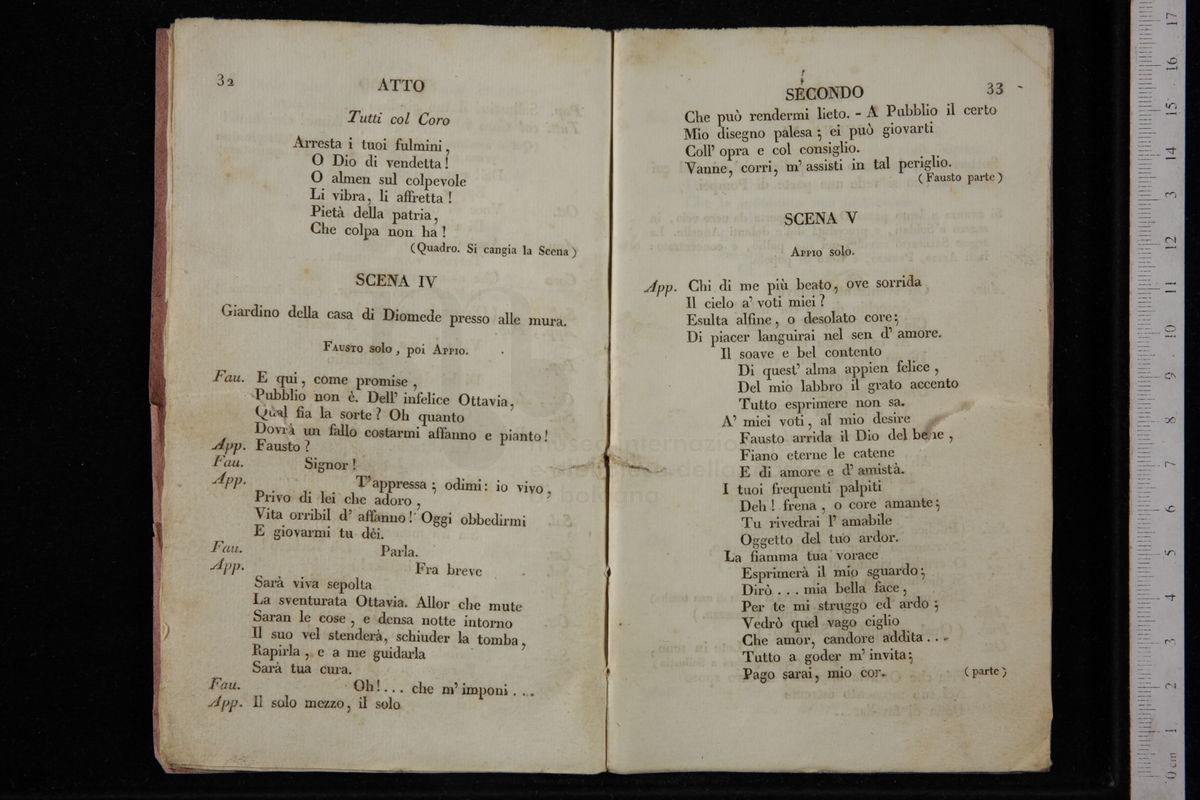 32
ATTO
Tutti col Coro
Arresta i tuoi fulmini,
O Dio di vendetta!
O almen sul colpevole
Li vibra, li affretta!
Pietà della patria,
Che colpa non ha!
(Quadro. Si cangia la Scena)
SCENA IV
Giardino della casa di Diomede presso alle mura.
FAUSTO solo, poi APPIO.
Fau. E qui, come promise,
Pubblio non è. Dell' infelice Ottavia,
Qual fia la sorte? Oh quanto
Dovrà un fallo costarmi affanno e pianto!
App. Fausto?
Fau. Signor!
App. T'appressa; odimi: io vivo,
Privo di lei che adoro,
Vita orribil d' affanno! Oggi obbedirmi
E giovarmi tu dèi.
Fau. Parla.
App. Fra breve
Sarà viva sepolta
La sventurata Ottavia. Allor che mute
Saran le cose, e densa notte intorno
Il suo vel stenderà, schiuder la tomba,
Rapirla, e a me guidarla
Sarà tua cura.
Fau. Oh!... che m' imponi...
App. Il solo mezzo, il solo
SECONDO
33
Che può rendermi lieto. - A Pubblio il certo
Mio disegno palesa; ei può giovarti
Coll' opra e col consiglio.
Vanne, corri, m' assisti in tal periglio.
(Fausto parte)
SCENA V
APPIO solo.
App. Chi di me più beato, ove sorrida
Il cielo a' voti miei?
Esulta alfine, o desolato core;
Di piacer languirai nel sen d' amore.
Il soave e bel contento
Di quest' alma appien felice,
Del mio labbro il grato accento
Tutto esprimere non sa.
A' miei voti, al mio desire
Fausto arrida il Dio del bene,
Fiano eterne le catene
E di amore e d' amistà.
I tuoi frequenti palpiti
Deh! frena, o core amante;
Tu rivedrai l' amabile
Oggetto del tuo ardor.
La fiamma tua vorace
Esprimerà il mio sguardo;
Dirò... mia bella face,
Per te mi struggo ed ardo;
Vedrò quel vago ciglio
Che amor, candore addita...
Tutto a goder m' invita;
Pago sarai, mio cor. (parte)
0 cm 1 2 3 4 5 6 7 8 9 10 11 12 13 14 15 16 17